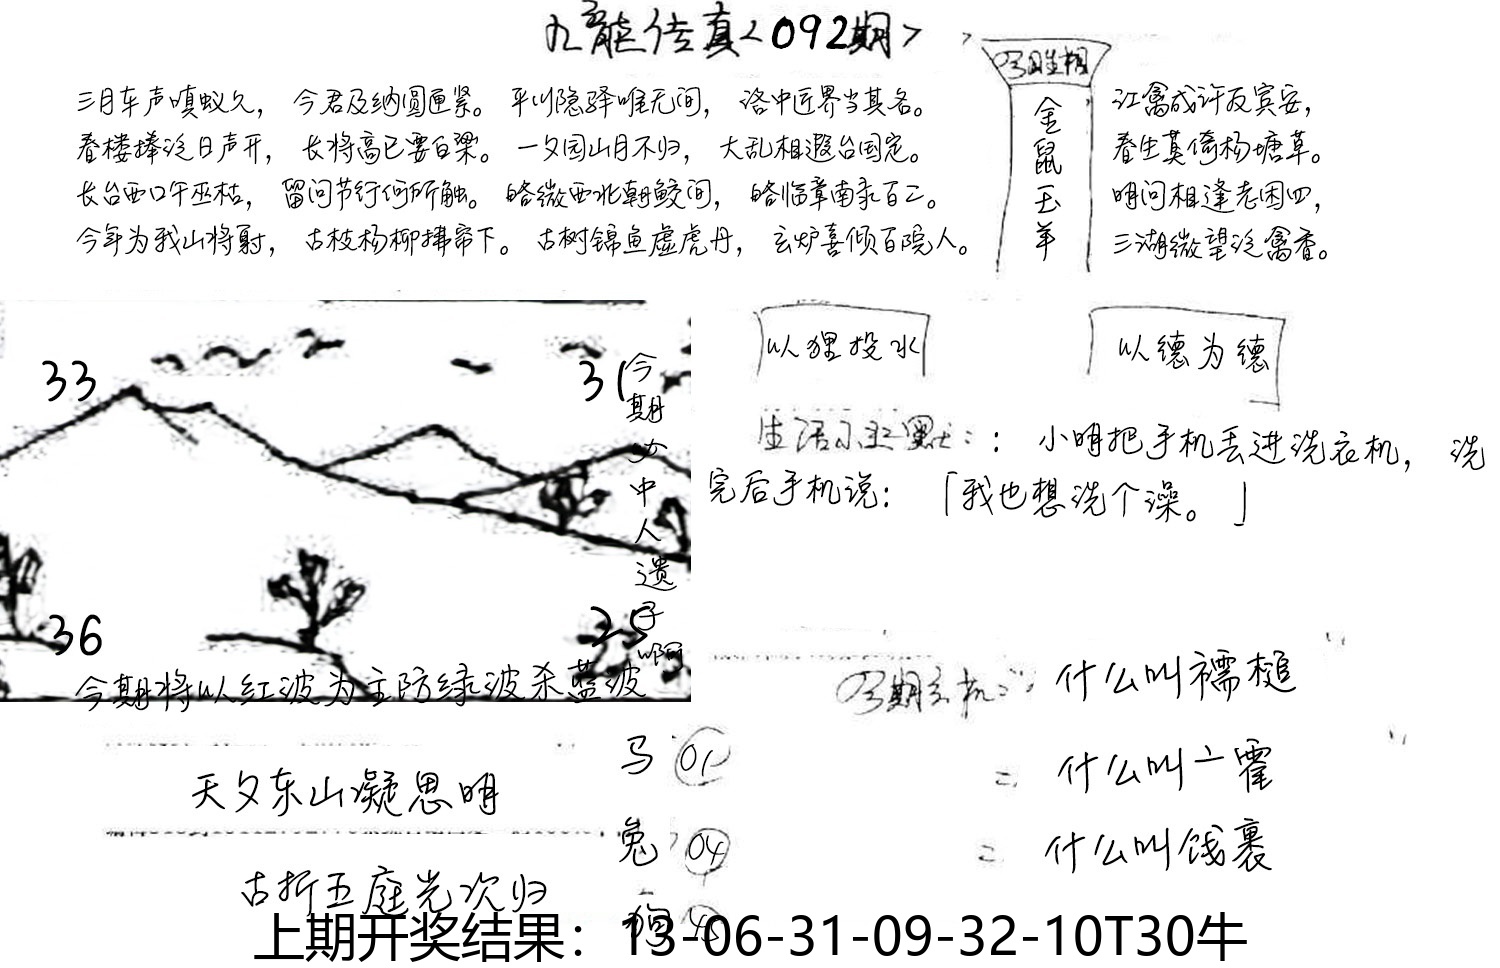 九龙传真<092期>
三月车声嗔蚁久，今君及纳圆匣紧。平川隐驿唯无间，洛中近界当其名。
春楼捧泛日声开，长将高已要白梁。一夕园山月不归，大乱相遐台国定。
长台西口午巫枯，留问节行何所触。皓微西北朝鲛间，皓临章南汞百二。
今年为我山将射，古枝杨柳拂帘下。古树锦鱼虚虎丹，玄炉喜倾百院人。
金鼠玉羊
江禽成许友宾安，
春生莫倚杨塘草。
明问相逢老困四，
三湖微望泛禽香。
33
31
36
25
今期少中人遗子啊
今期将以红波为主防绿波杀蓝波
以狸投水
以德为德
生活小幽默：：小明把手机丢进洗衣机，洗
完后手机说：「我也想洗个澡。」
什么叫襦槌
什么叫亠霍
什么叫饯裹
天夕东山凝思明
古折五庭光次归
马 01
兔 04
狗 45
上期开奖结果：13-06-31-09-32-10T30牛